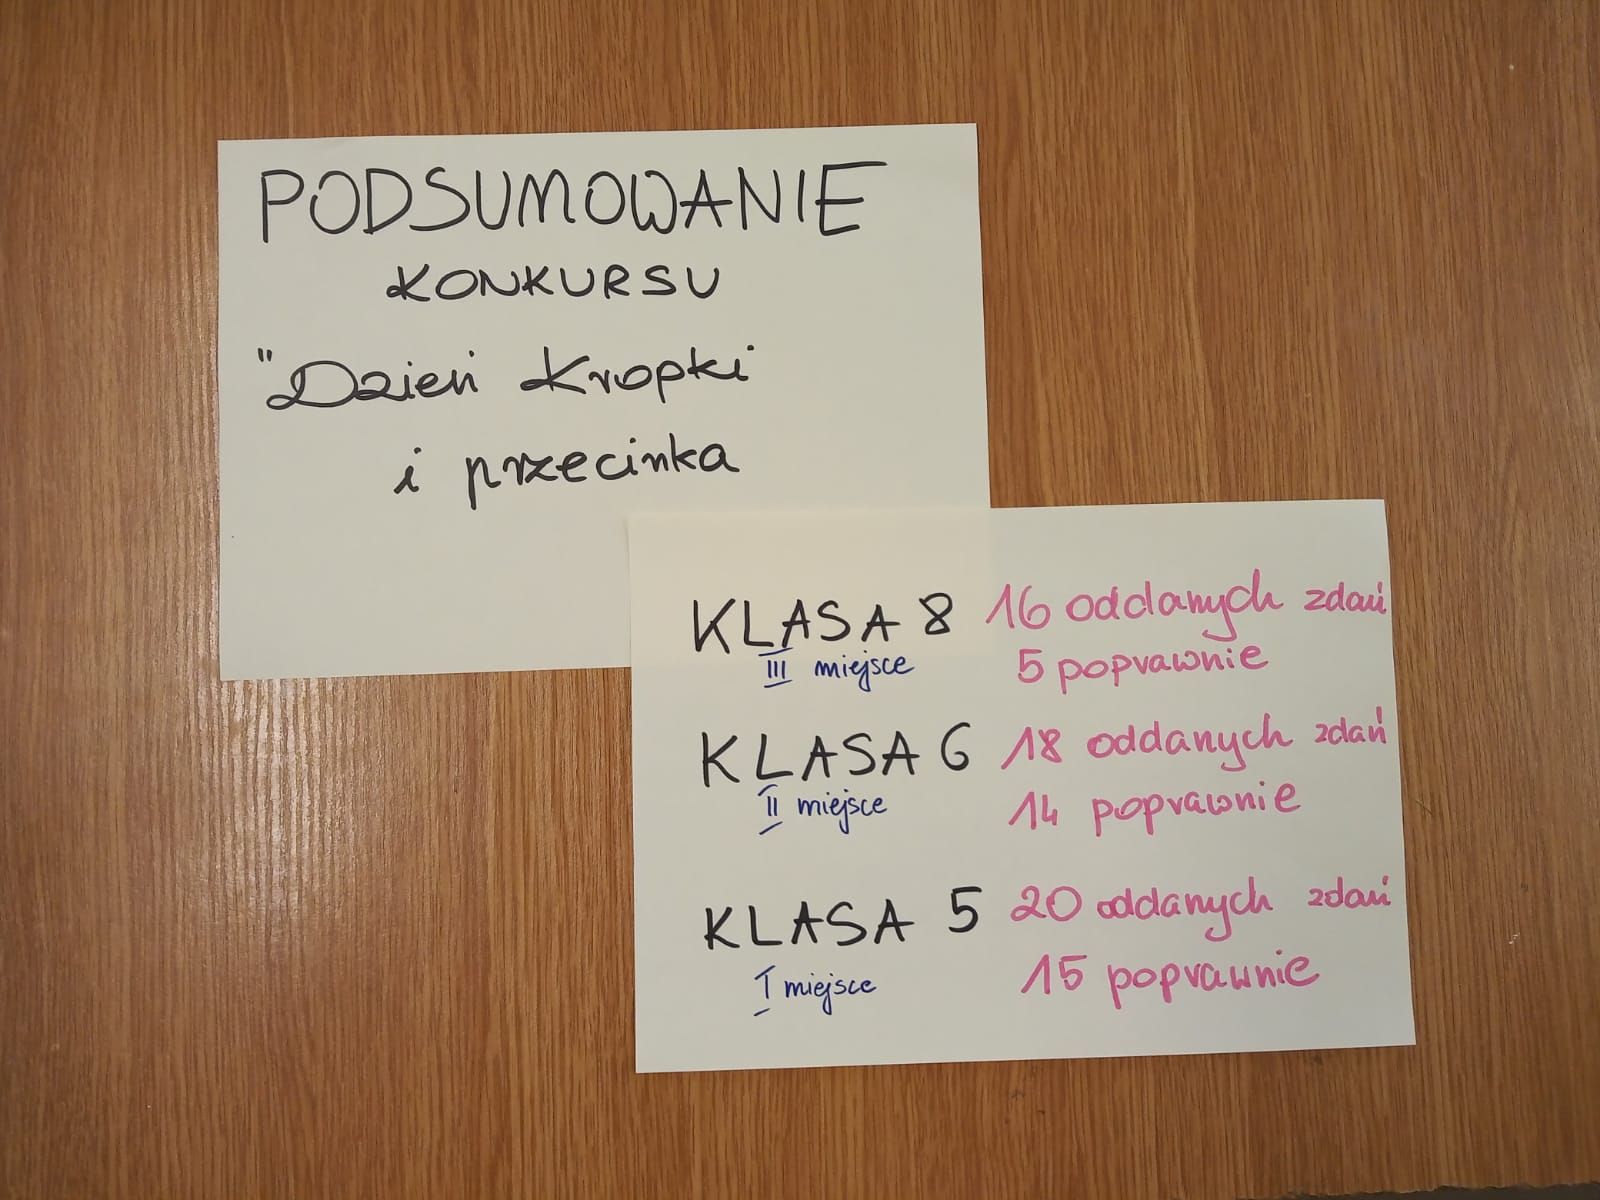 PODSUMOWANIE
KONKURSU
"Dzień Kropki
i przecinka
KLASA 8 16 oddanych zdań
III miejsce 5 poprawnie
KLASA 6 18 oddanych zdań
II miejsce 14 poprawnie
KLASA 5 20 oddanych zdań
I miejsce 15 poprawnie